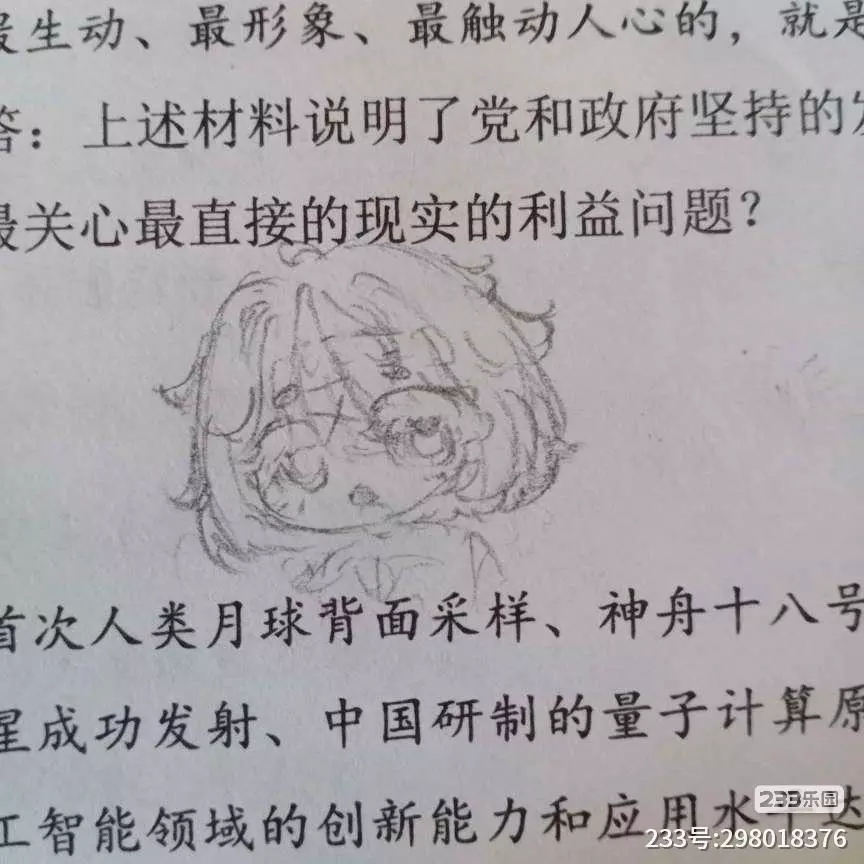 最生动、最形象、最触动人心的，就是
答：上述材料说明了党和政府坚持的发
最关心最直接的现实的利益问题？
首次人类月球背面采样、神舟十八号
星成功发射、中国研制的量子计算原
工智能领域的创新能力和应用水平达
233乐园
233号:298018376